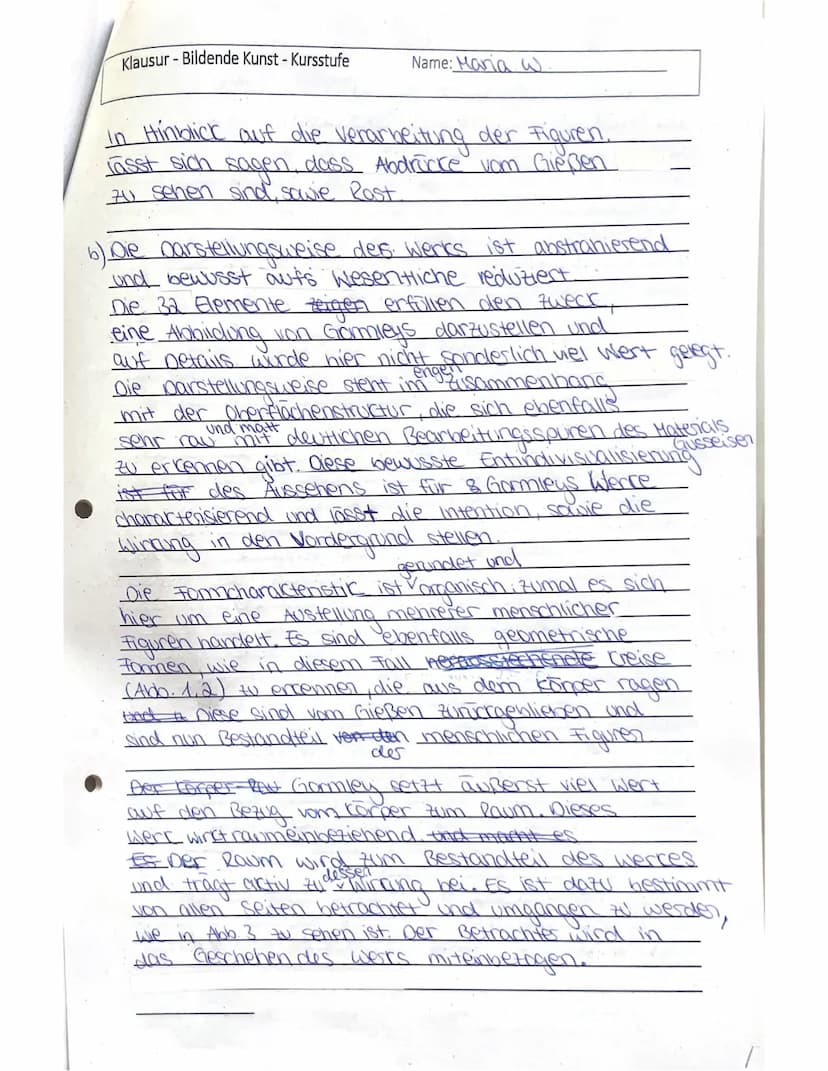 Klausur - Bildende Kunst - Kursstufe Name: Maria W.
In Hinblick auf die Verarbeitung der Figuren,
lässt sich sagen, dass Abdrücke vom Gießen
zu sehen sind, sowie Rost.
b) Die Darstellungsweise des Werks ist abstrahierend
und bewusst aufs Wesentliche reduziert.
Die 32 Elemente zeigen erfüllen den Zweck,
eine Abbildung von Gormleys darzustellen und
auf Details wurde hier nicht sonderlich viel Wert gelegt.
Die Darstellungsweise steht im engen Zusammenhang
mit der Oberflächenstructur, die sich ebenfalls
sehr rau und matt mit deutlichen Bearbeitungsspuren des Materials Gusseisen
zu erkennen gibt. Diese bewusste Entindivisualisierung
ist für des Aussehens ist für Gormleys Werke
charakterisierend und lässt die Intention, sowie die
Wirkung in den Vordergrund stellen.
Die Formcharakteristik ist gerundet und organisch, zumal es sich
hier um eine Austellung mehrerer menschlicher
Figuren handelt. Es sind ebenfalls geometrische
Formen, wie in diesem Fall Kreise
(Abb. 1,2) zu erkennen, die aus dem Körper ragen
und Diese sind vom Gießen zurückgeblieben und
sind nun Bestandteil von den der menschlichen Figuren
Der Körper Gormley setzt äußerst viel Wert
auf den Bezug vom Körper zum Raum. Dieses
Werk wirkt raumeinbeziehend und macht es
Es Der Raum wird zum Bestandteil des Werkes
und trägt activ zu dessen Wirkung bei. Es ist dazu bestimmt
von allen Seiten betrachtet und umgangen zu werden,
wie in Abb. 3 zu sehen ist. Der Betrachter wird in
das Geschehen des Werks miteinbezogen.